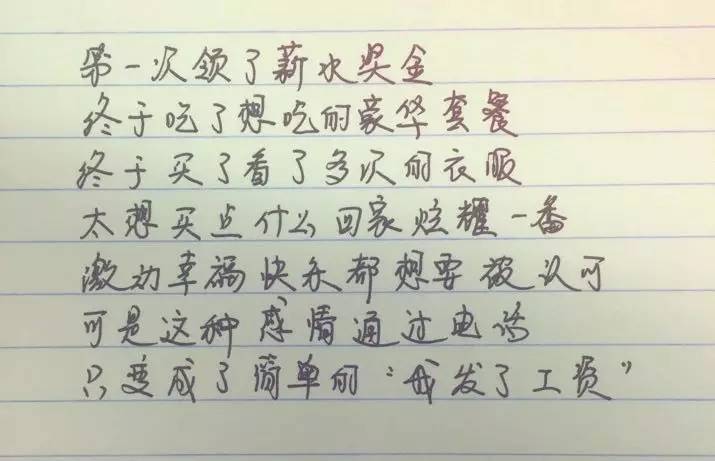 第一次领了薪水奖金
终于吃了想吃的豪华套餐
终于买了看了多次的衣服
太想买点什么回家炫耀一番
激动幸福快乐都想要被认可
可是这种感情通过电话
只变成了简单的“我发了工资”